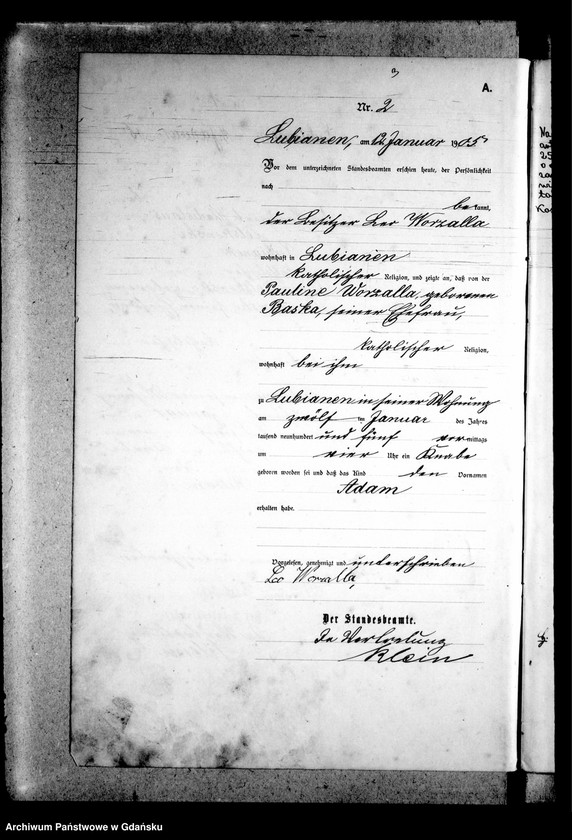 A.
Nr. 2
Lubianen, am 12. Januar 1905
Vor dem unterzeichneten Standesbeamten erschien heute, der Persönlichkeit
nach
bekannt,
der Besitzer Leo Worzalla
wohnhaft in Lubianen
katholischer Religion, und zeigte an, daß von der
Pauline Worzalla, geborenen
Baska, seiner Ehefrau,
katholischer Religion,
wohnhaft bei ihm
zu Lubianen in seiner Wohnung
am zwölf ten Januar des Jahres
tausend neunhundert und fünf vormittags
um vier Uhr ein Knabe
geboren worden sei und daß das Kind den Vornamen
Adam
erhalten habe.
Vorgelesen, genehmigt und unterschrieben
Leo Worzalla,
Der Standesbeamte.
In Vertretung
Klein
Archiwum Państwowe w Gdańsku